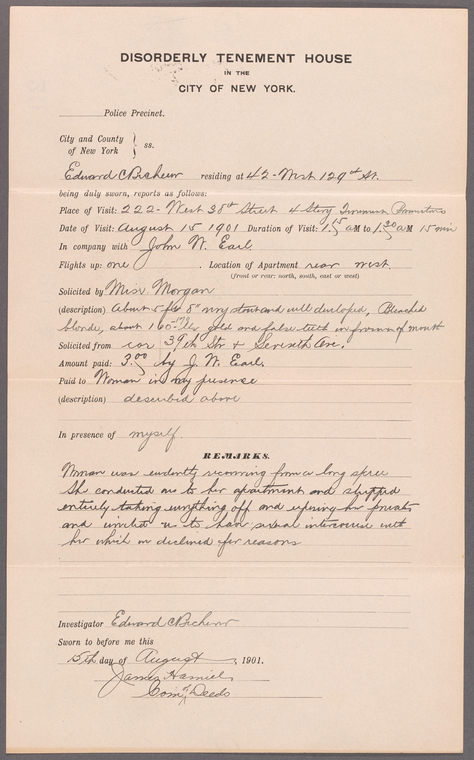 DISORDERLY TENEMENT HOUSE
IN THE
CITY OF NEW YORK.
Police Precinct.
City and County
of New York } ss.
Edward residing at 42 West 129th St.
being duly sworn, reports as follows:
Place of Visit: 222 - West 38th Street 4 Story Tenement
Date of Visit: August 15 1901 Duration of Visit: 1.15 AM to 1.30 AM 15 min
In company with John W. Earl.
Flights up: one . Location of Apartment rear west.
(front or rear: north, south, east or west)
Solicited by Miss Morgan
(description) About 5 ft 8" very stout and well developed, Bleached
blonde, about gold and false teeth in front of mouth
Solicited from cor 39th Str & Seventh Ave.
Amount paid: 3.00 by J. W. Earl.
Paid to Woman in my presence
(description) described above
In presence of myself.
REMARKS.
Woman was evidently recovering from a long spree
She conducted us to her apartment and stripped
entirely taking everything off and exposing her privates
and invited us to have sexual intercourse with
her which we declined for reasons
Investigator Edward
Sworn to before me this
15th day of August , 1901.
James
Com of Deeds